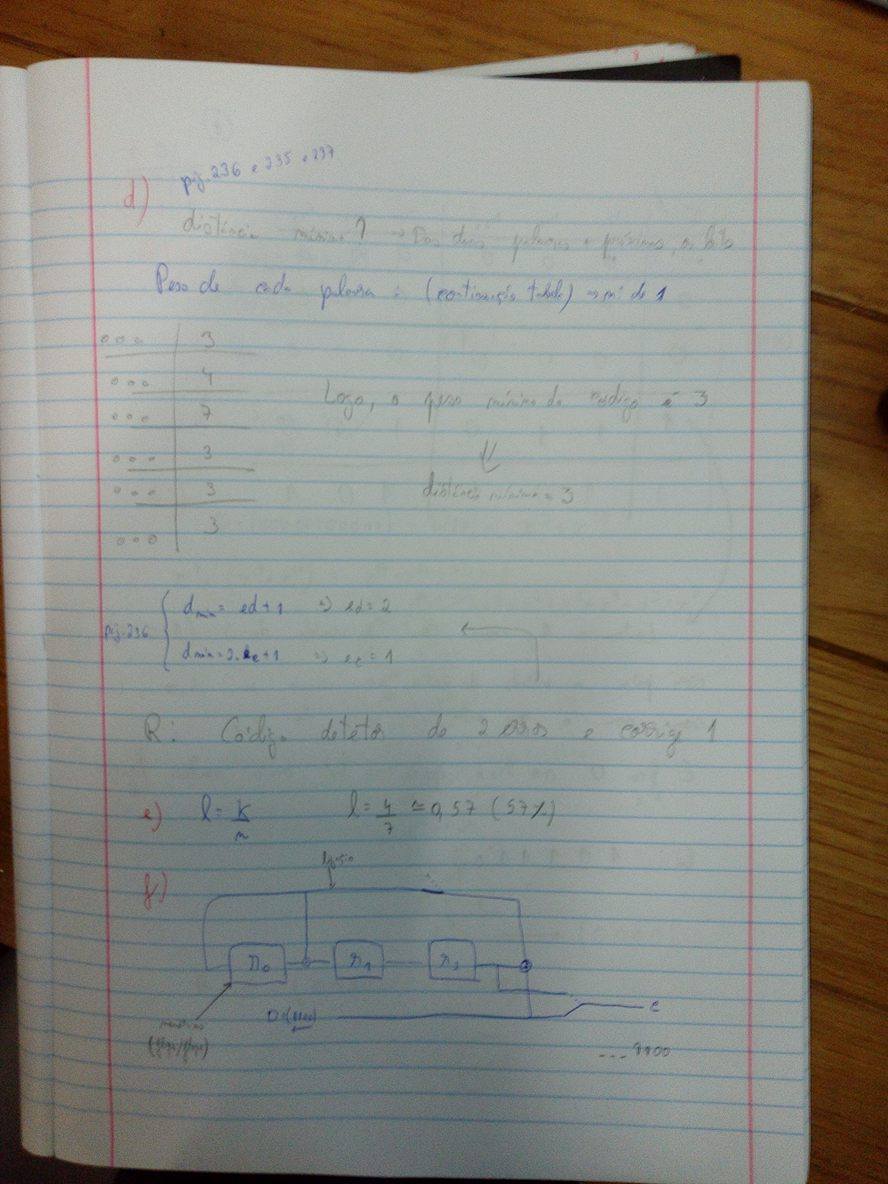 d) pág. 236 e 235 e 237
distância mínima? → Das duas palavras + próximas, os bits
Peso de cada palavra: (continuação tabela) → nº de 1
000 | 3
000 | 4
000 | 7
000 | 3
000 | 3
000 | 3
Logo, o peso mínimo do código é 3
⇓
distância mínima = 3
pág. 236
dmin = ed+1 ⇒ ed = 2
dmin = 2.ec+1 ⇒ ec = 1
R: Código detetor de 2 erros e corrige 1
e) l = k/n l = 4/7 ≈ 0,57 (57%)
f) ligação
r0 r1 r2
D=(1100) c
memórias
(flops/flops)
--- 1100